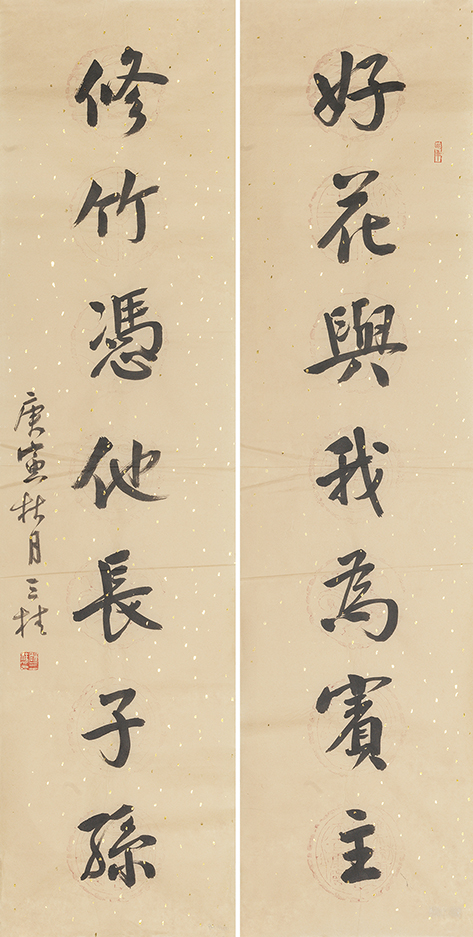 好花與我為賓主
修竹憑他長子孫
庚寅秋月三桂